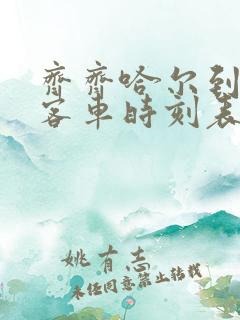 齐齐哈尔到
客车时刻表
姚有志
未经同意禁止转载